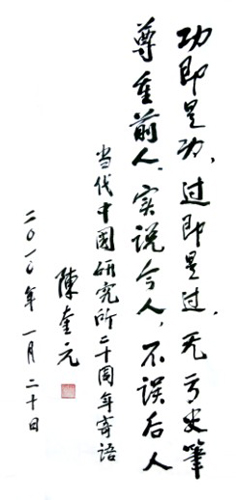 功即是功，过即是过，无亏史筆
尊重前人，实说今人，不误后人
当代中國研究所二十周年寄语
陳奎元
二〇一〇年一月二十日